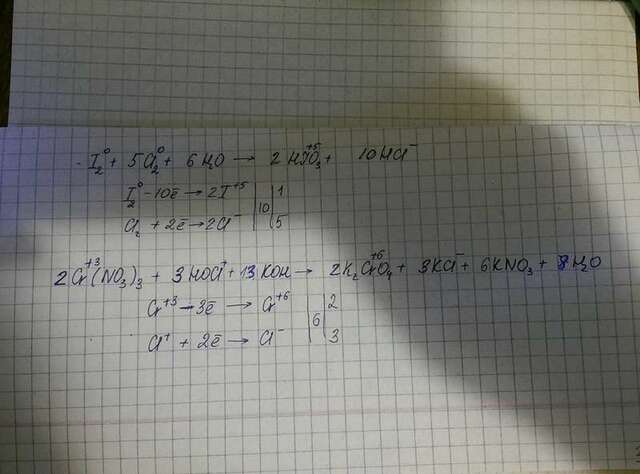 I₂⁰ + 5Cl₂⁰ + 6H₂O → 2HI⁺⁵O₃ + 10HCl⁻
I₂⁰ - 10ē → 2I⁺⁵ | | 1
Cl₂ + 2ē → 2Cl⁻ | 10 | 5
2Cr⁺³(NO₃)₃ + 3HOCl⁺ + 13KOH → 2K₂Cr⁺⁶O₄ + 3KCl⁻ + 6KNO₃ + 8H₂O
Cr⁺³ - 3ē → Cr⁺⁶ | | 2
Cl⁺ + 2ē → Cl⁻ | 6 | 3